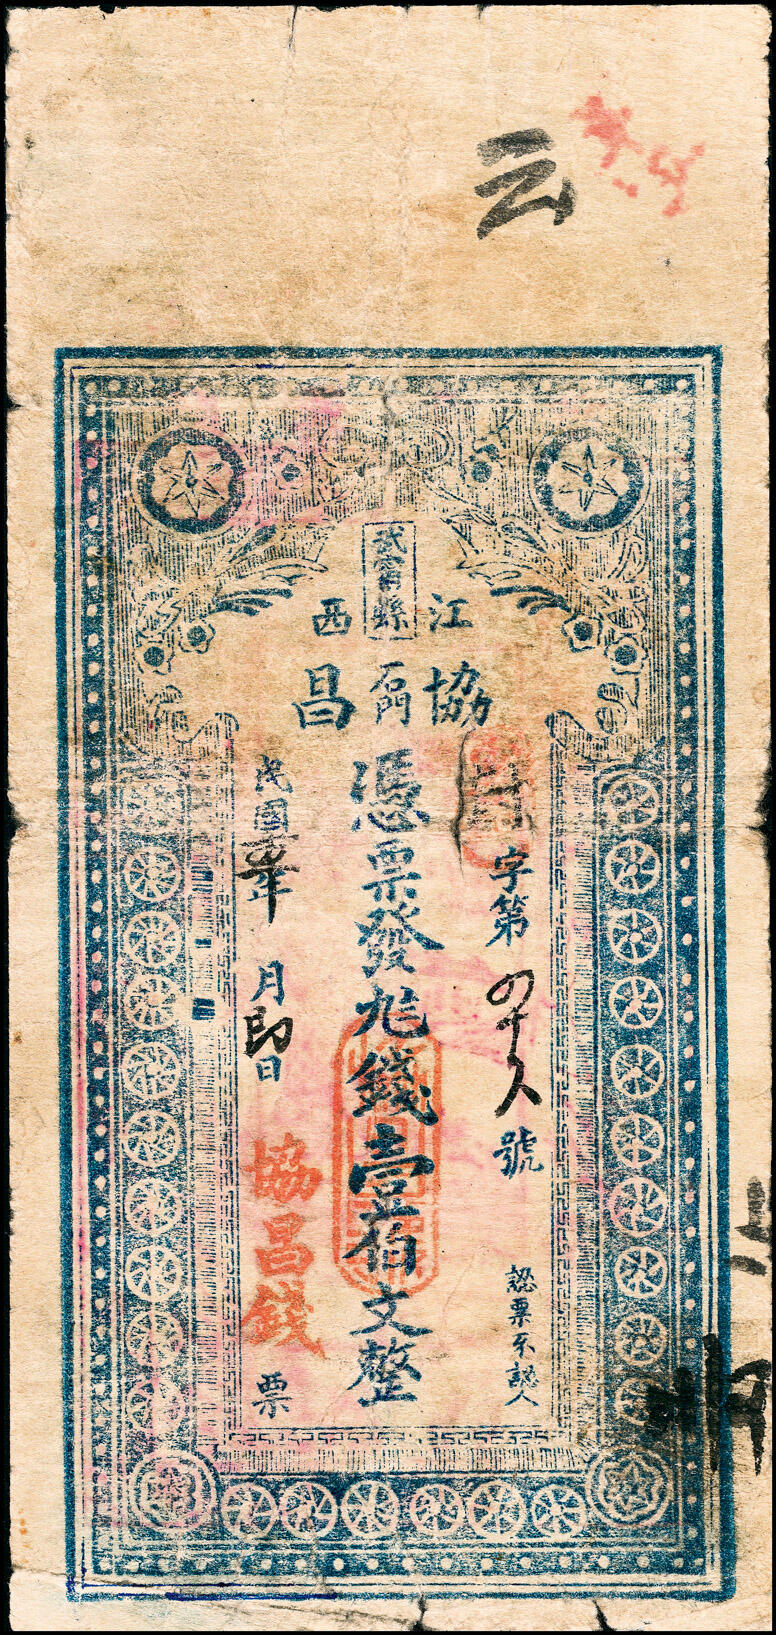 云
武甯縣
江西
協昌
石門
字第四十八號
認票不認人
憑票發九錢壹佰文整
民國年月即日
協昌錢票